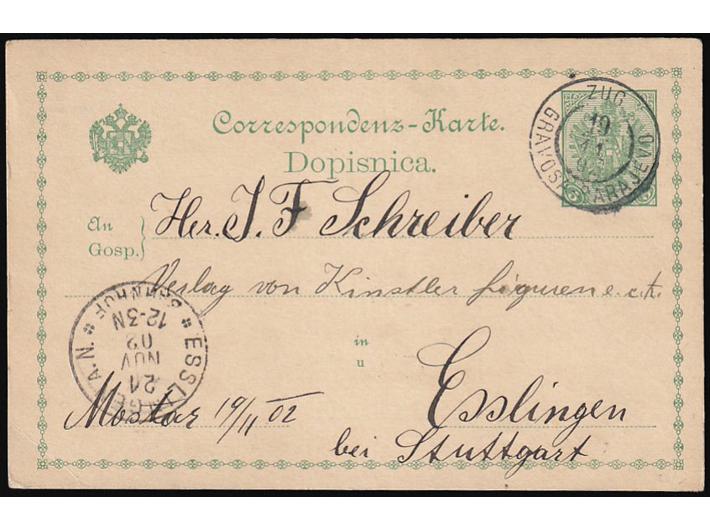 Correspondenz-Karte.
Dopisnica.
An
Gosp.
Her. J. F Schreiber
Verlag von Kinstler figuren e.c.t.
in
u
Esslingen
bei Stuttgart
Mostar 19/11 02
ZUG
19
11
GRAVOSA SARAJEVO
ESSLINGEN A. N.
BAHNHOF
21
NOV
02
12-3N